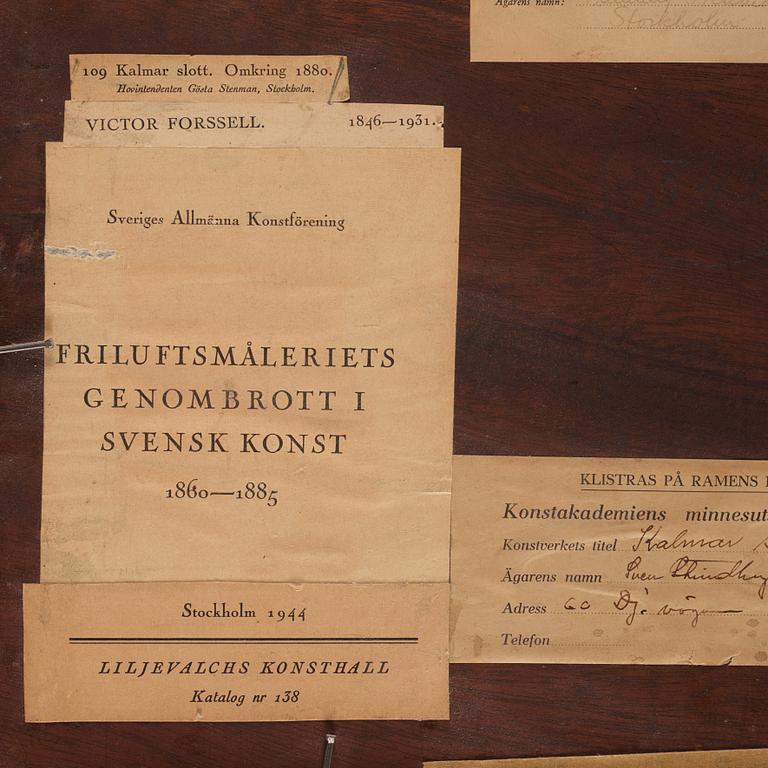 Ägarens namn:
Stockholm
109 Kalmar slott. Omkring 1880.
Hovintendenten Gösta Stenman, Stockholm.
VICTOR FORSSELL. 1846—1931.
Sveriges Allmänna Konstförening
FRILUFTSMÅLERIETS
GENOMBROTT I
SVENSK KONST
1860—1885
Stockholm 1944
LILJEVALCHS KONSTHALL
Katalog nr 138
KLISTRAS PÅ RAMENS
Konstakademiens minnesut
Konstverkets titel Kalmar
Ägarens namn Sven
Adress 60 Dj. vägen
Telefon